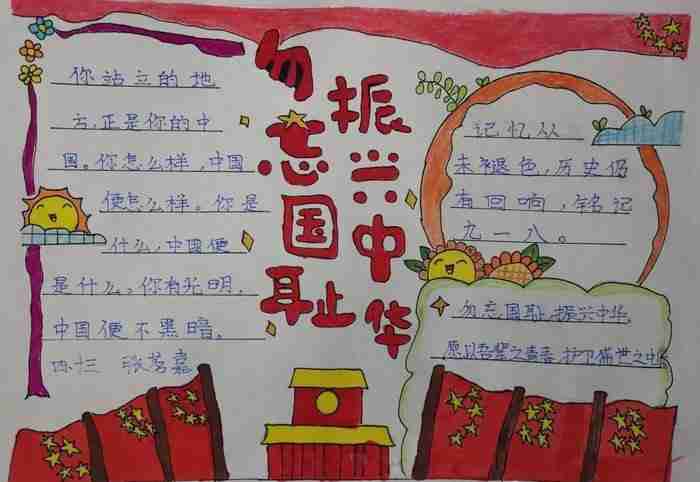 勿忘国耻
振兴中华
你站立的地
方,正是你的中
国。你怎么样,中国
便怎么样。你是
什么,中国便
是什么。你有光明,
中国便不黑暗。
四七三
记忆从
未褪色,历史仍
有回响,铭记
九一八。
勿忘国耻,振兴中华,
愿以吾辈之青春,护卫盛世之中